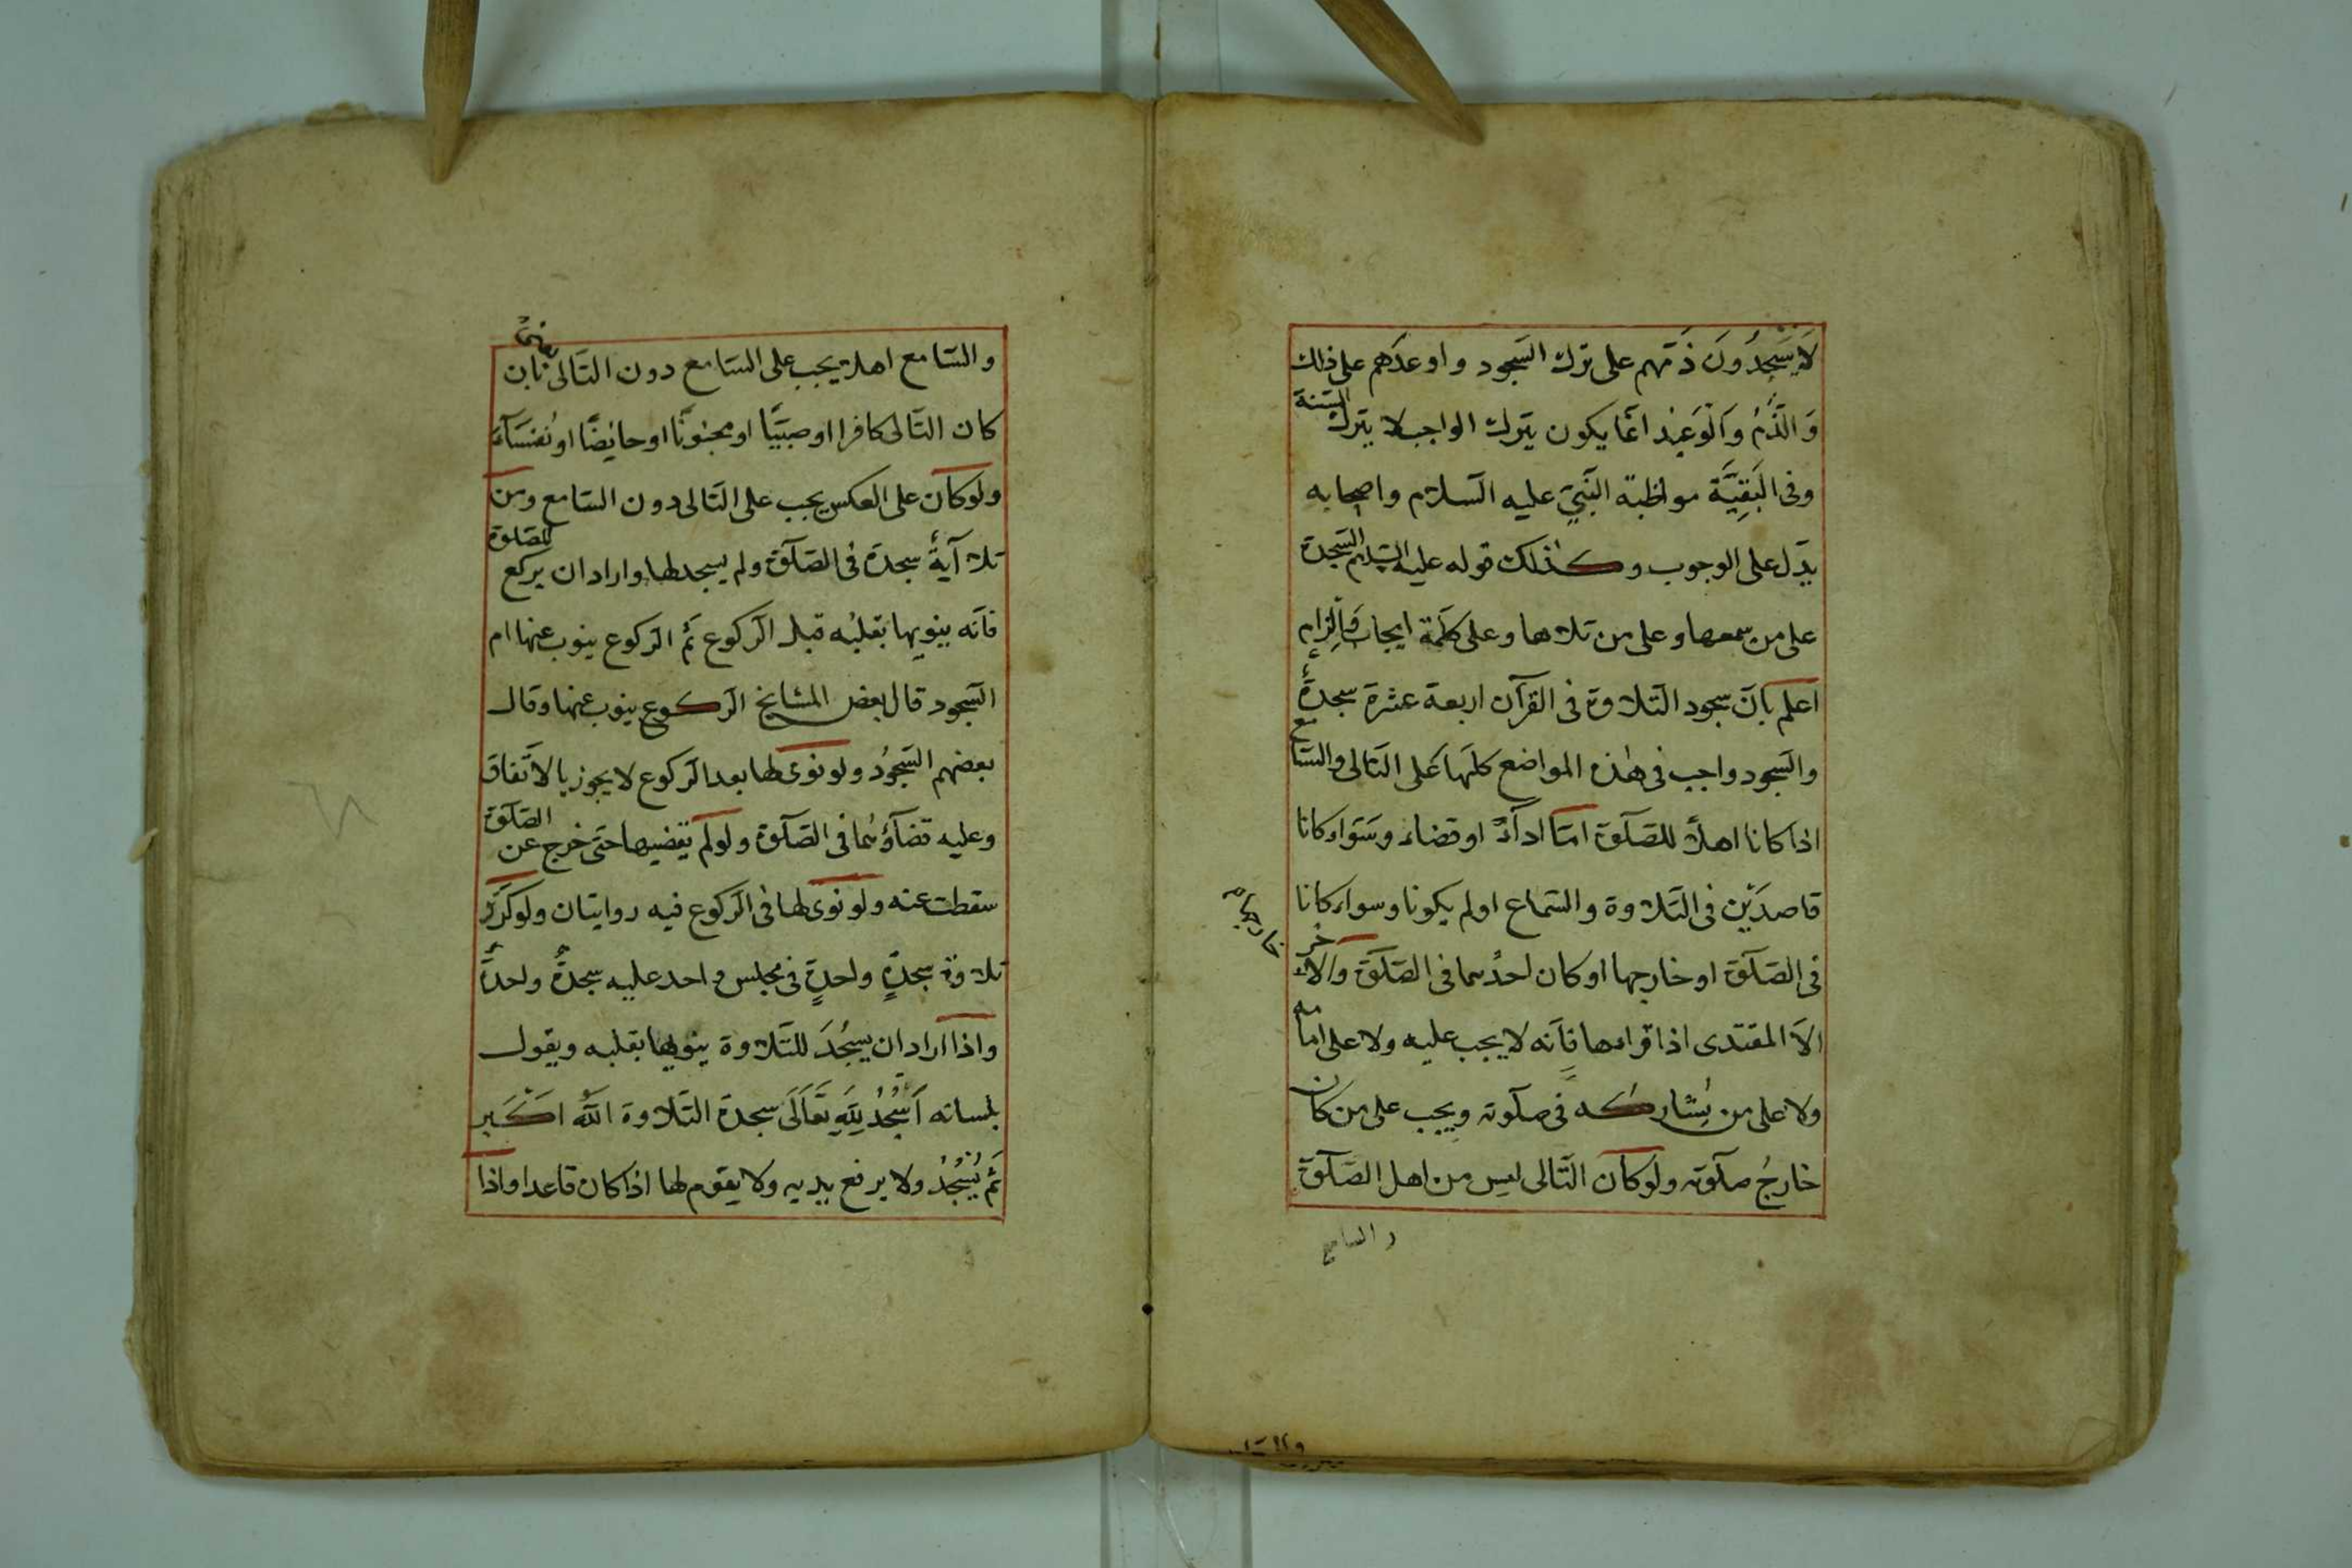 لَا يَسْجُدُونَ ذمّهم على ترك السّجود واوعدهم على ذلك
وَالذَّمُّ وَالْوَعِيد انّما يكون بترك الواجب لا بترك السّنة
وفى الْبَقِيَّة مواظبة النّبىّ عليه السّلام واصحابه
يدّل على الوجوب وكذلك قوله عليه السّلام السّجدة
على من سمعها وعلى من تلاها وعلى كلمة ايجاب والزام
اعلم بانّ سجود التّلاوة فى القرآن اربعة عشرة سجدةً
والسّجود واجب فى هذه المواضع كلّها على التّالى والسّامع
اذا كانا اهلاً للصّلوة امّا اداءً او قضاء وسواء كانا
قاصدَيْن فى التّلاوة والسّماع اولم يكونا وسواء كانا
فى الصّلوة او خارجها او كان احدُهما فى الصّلوة والآخر
خارجها
الّا المقتدى اذا قراءها فانّه لا يجب عليه ولا على امامه
ولا على من يشاركه فى صلوته ويجب على من كان
خارجُ صلوته ولو كان التّالى ليس من اهل الصّلوة
والسامع
والسّامع اهلا يجب على السّامع دون التّالى بان
كان التّالى كافرا او صبيّا او مجنونًا او حايضًا او نُفَسَآءَ
ولو كان على العكس يجب على التّالى دون السّامع ومن
تلا آيةَ سجدة فى الصّلوة ولم يسجد لها واراد ان يركع للصّلوة
فانّه ينويها بقلبه قبل الرّكوع ثمّ الرّكوع ينوب عنها ام
السّجود قال بعض المشايخ الرّكوع ينوب عنها وقال
بعضهم السّجودُ ولو نوى لها بعد الرّكوع لا يجوز بالاتّفاق
وعليه قضآؤُها فى الصّلوة ولو لم يقضيها حتى خرج عن الصّلوة
سقطت عنه ولو نوى لها فى الرّكوع فيه روايتان ولو كرّر
تلاوة سجدةٍ واحدةٍ فى مجلس واحد عليه سجدةٌ واحدةٌ
واذا اراد ان يسجُدَ للتّلاوة ينويها بقلبه ويقول
بلسانه اَسْجُدُ لِلّٰهِ تَعَالَى سجدة التّلاوة اللّٰه اكبر
ثمّ يَسْجُدُ ولا يرفع يديه ولا يقوم لها اذا كان قاعدا واذا